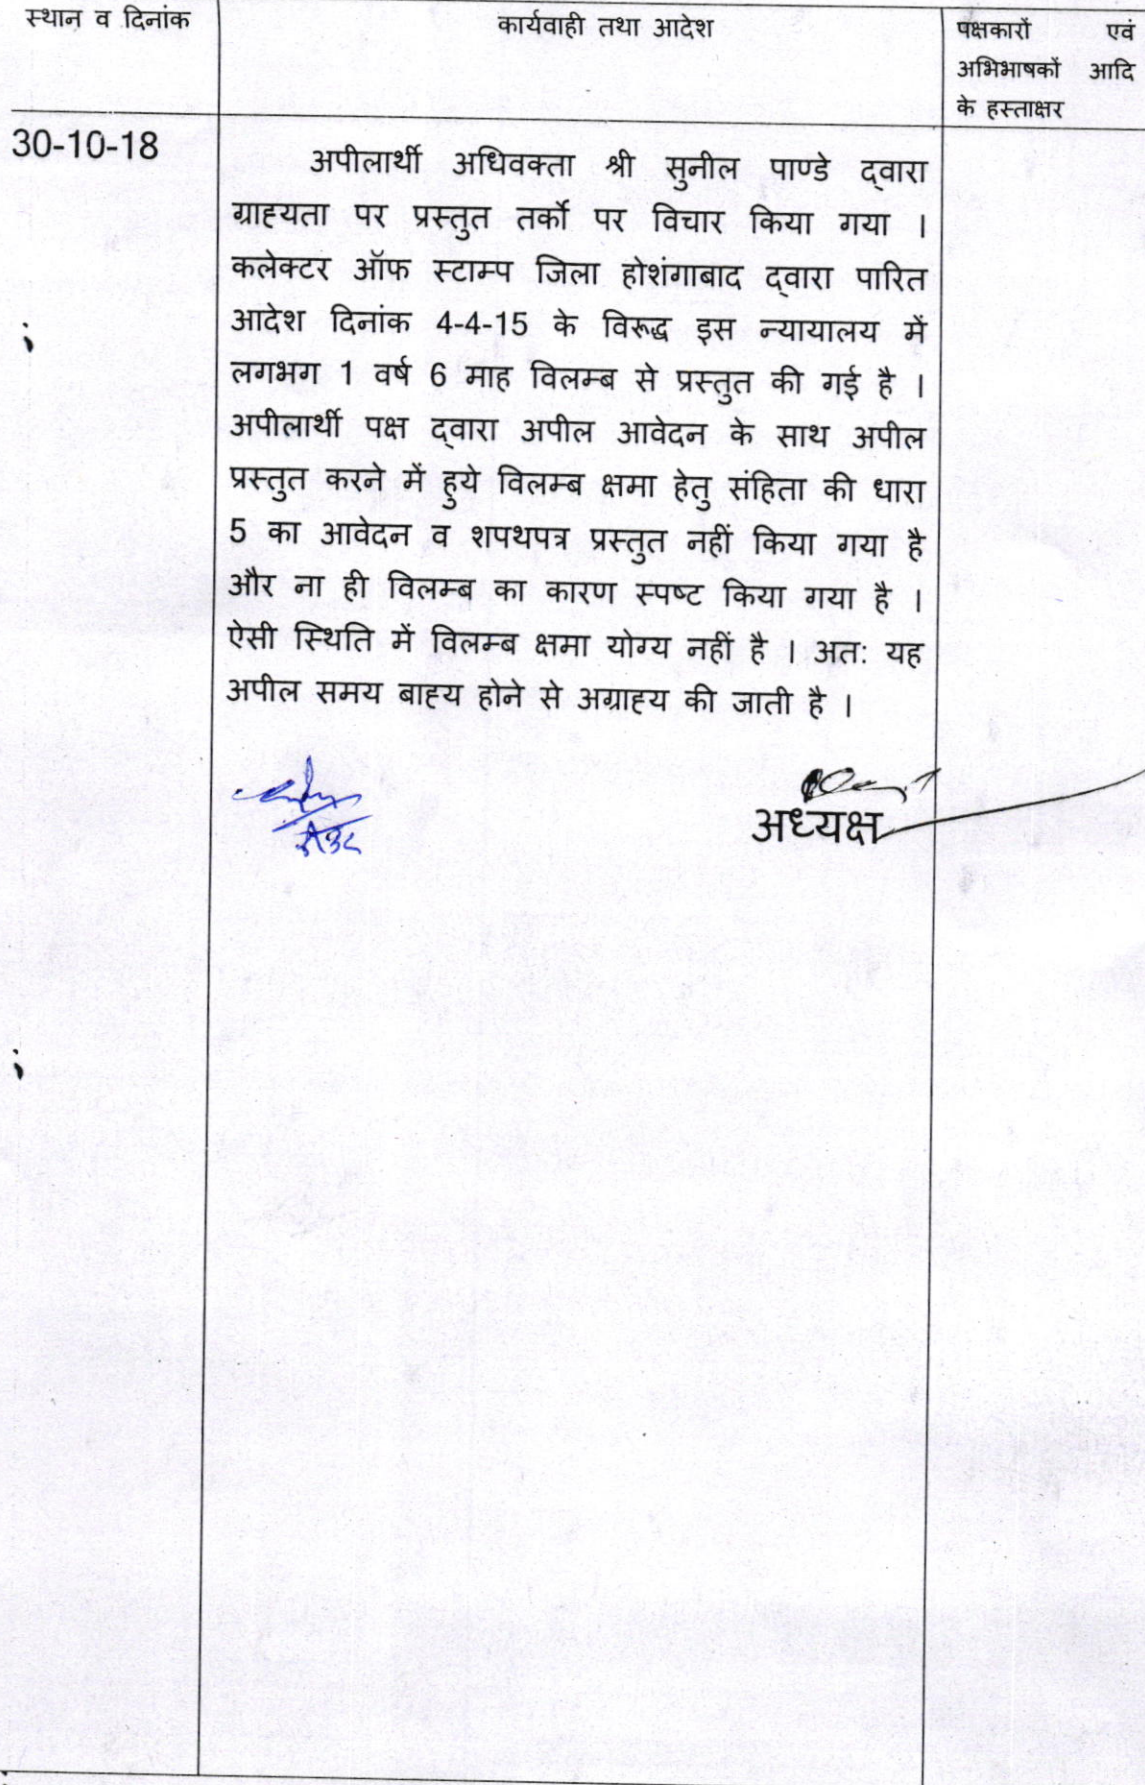 स्थान व दिनांक
कार्यवाही तथा आदेश
पक्षकारों एवं
अभिभाषकों आदि
के हस्ताक्षर
30-10-18
अपीलार्थी अधिवक्ता श्री सुनील पाण्डे द्वारा
ग्राह्यता पर प्रस्तुत तर्को पर विचार किया गया ।
कलेक्टर ऑफ स्टाम्प जिला होशंगाबाद द्वारा पारित
आदेश दिनांक 4-4-15 के विरूद्ध इस न्यायालय में
लगभग 1 वर्ष 6 माह विलम्ब से प्रस्तुत की गई है ।
अपीलार्थी पक्ष द्वारा अपील आवेदन के साथ अपील
प्रस्तुत करने में हुये विलम्ब क्षमा हेतु संहिता की धारा
5 का आवेदन व शपथपत्र प्रस्तुत नहीं किया गया है
और ना ही विलम्ब का कारण स्पष्ट किया गया है ।
ऐसी स्थिति में विलम्ब क्षमा योग्य नहीं है । अतः यह
अपील समय बाह्य होने से अग्राह्य की जाती है ।
अध्यक्ष